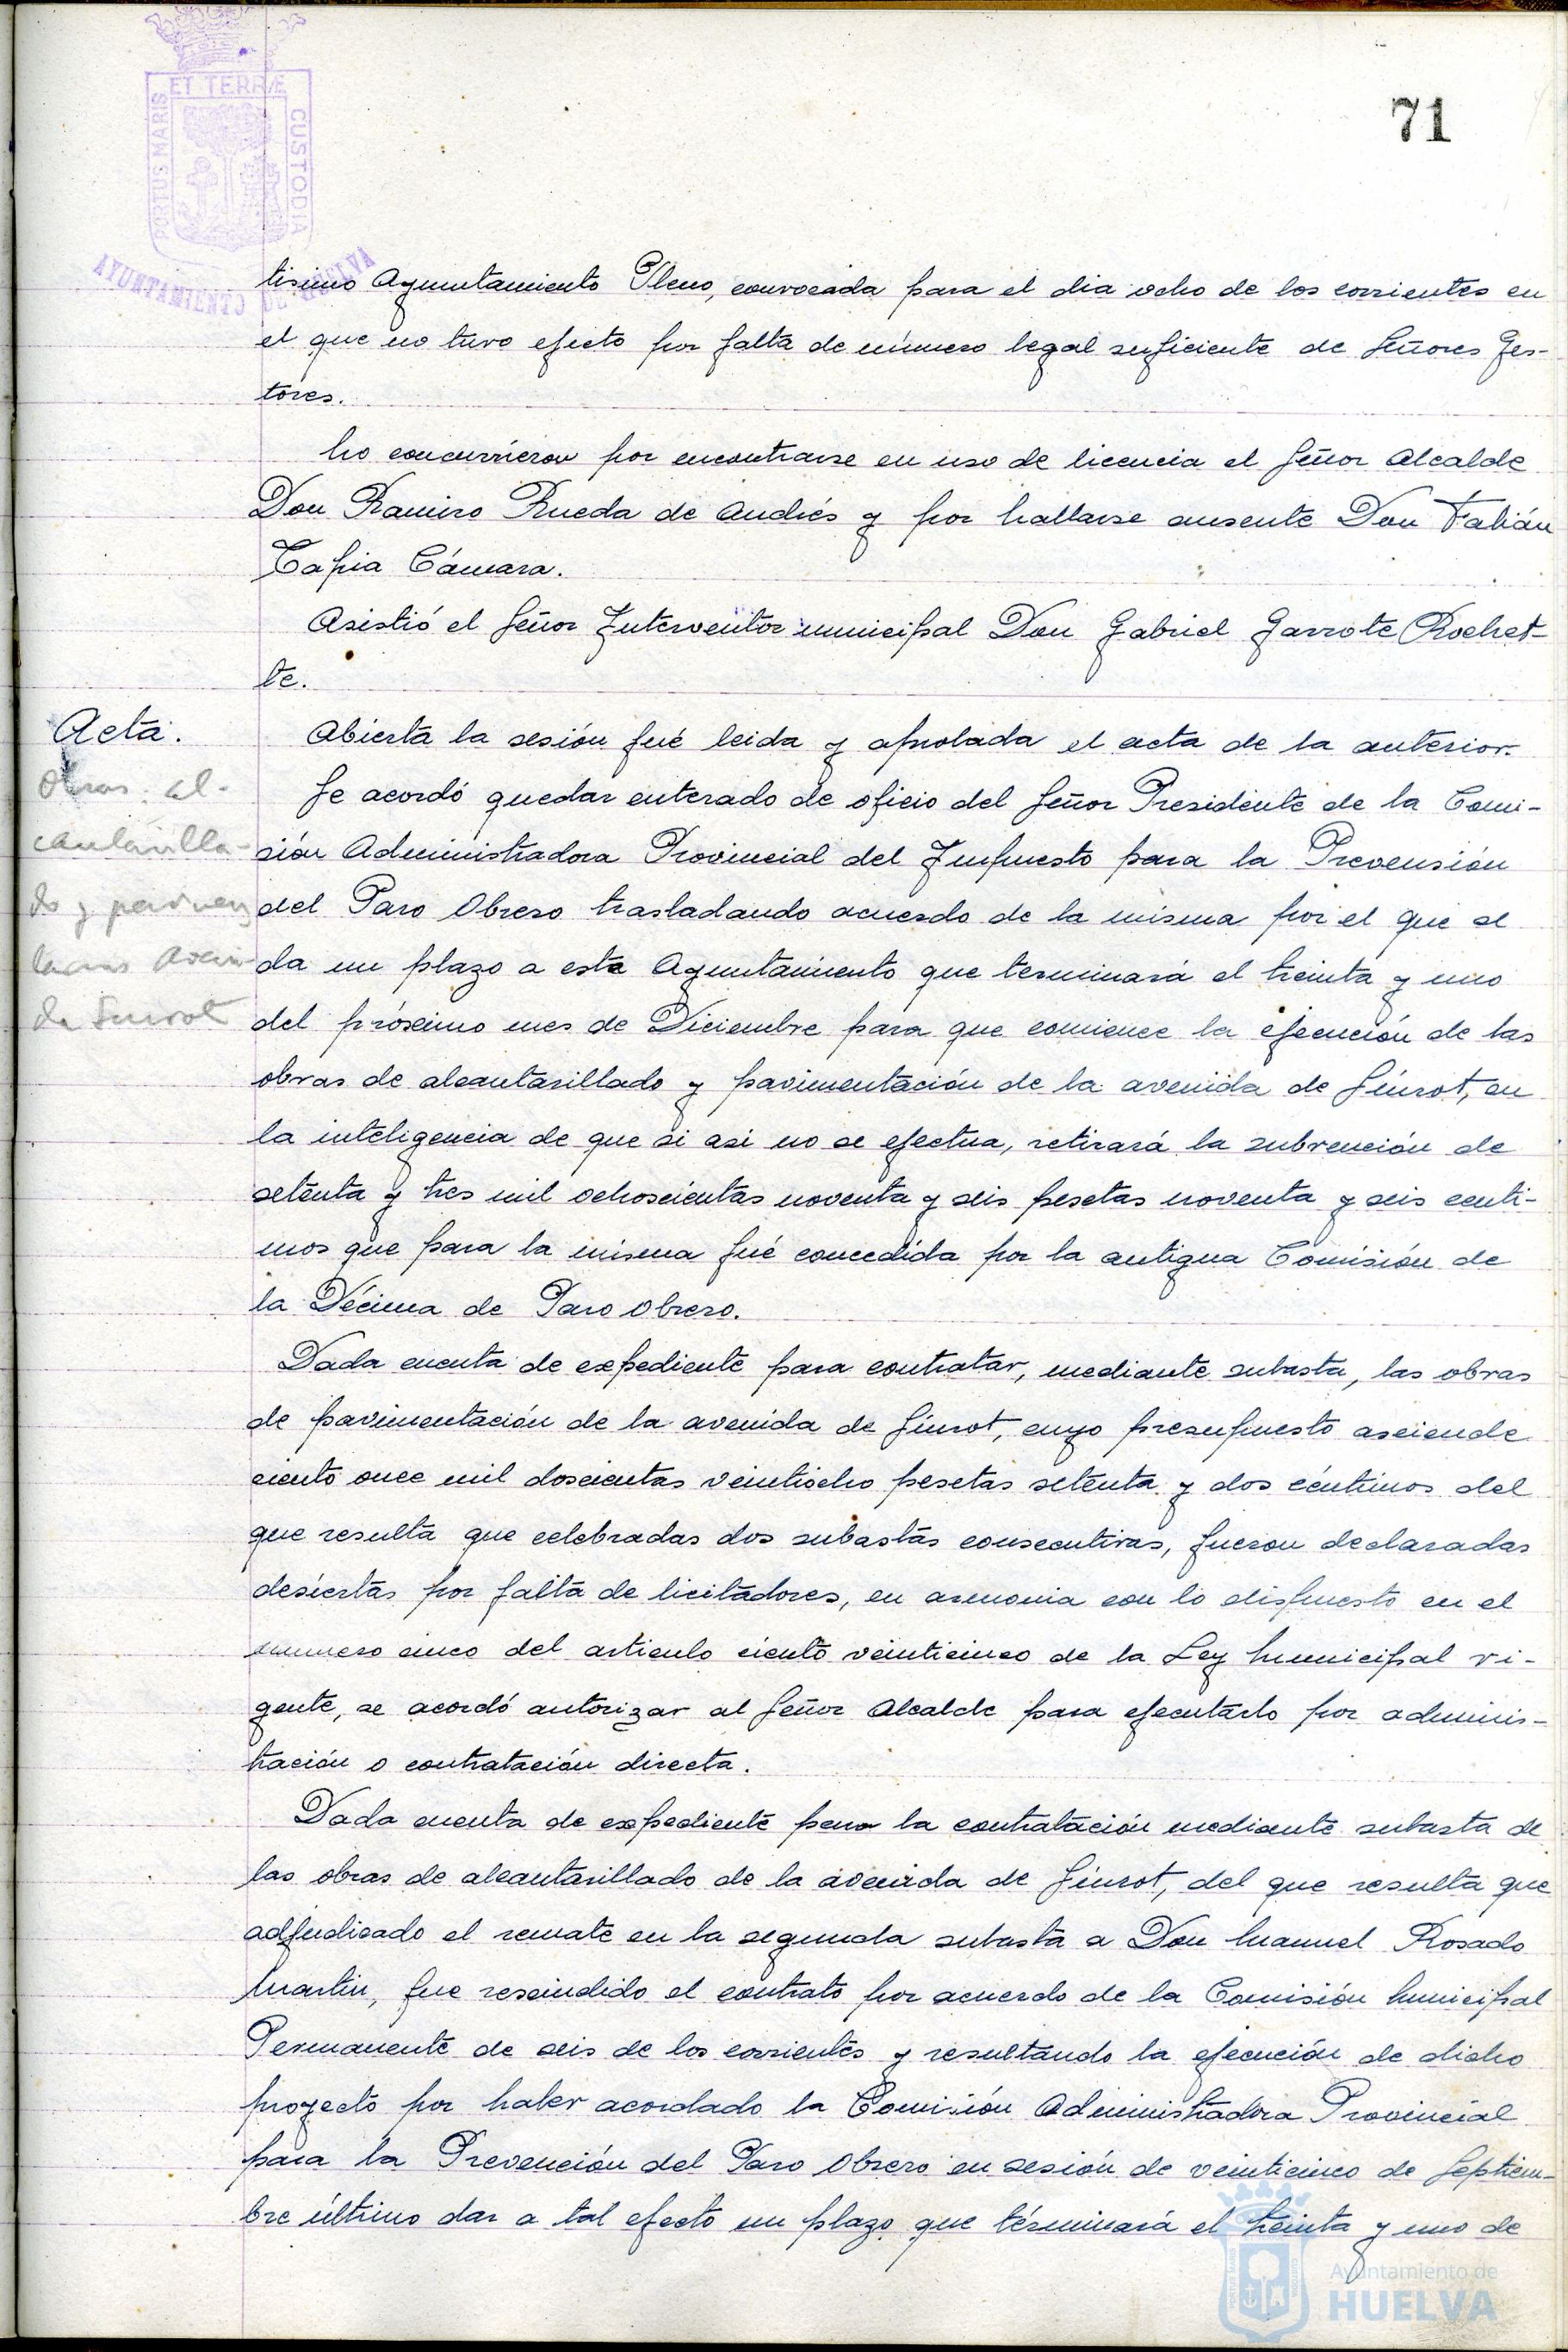 71
ET TERRÆ
PORTUS MARIS
CUSTODIA
AYUNTAMIENTO DE HUELVA
tisimo Ayuntamiento Pleno, convocada para el dia ocho de los corrientes en
el que no tuvo efecto por falta de número legal suficiente de Señores Ges-
tores.
No concurrieron por encontrarse en uso de licencia el Señor Alcalde
Don Ramiro Rueda de Andrés y por hallarse ausente Don Fabián
Tapia Cámara.
Asistió el Señor Interventor municipal Don Gabriel Garrote Rochet-
te.
Acta.
Abierta la sesión fué leida y aprobada el acta de la anterior.
Obras al-
cantarilla-
do y pavimen
tacion Aveni-
da Siurot
Se acordó quedar enterado de oficio del Señor Presidente de la Comi-
sión Administradora Provincial del Impuesto para la Prevensión
del Paro Obrero trasladando acuerdo de la misma por el que se
da un plazo a este Ayuntamiento que terminará el treinta y uno
del próximo mes de Diciembre para que comience la ejecución de las
obras de alcantarillado y pavimentación de la avenida de Siurot, en
la inteligencia de que si asi no se efectua, retirará la subvención de
setenta y tres mil ochoscientas noventa y seis pesetas noventa y seis centi-
mos que para la misma fué concedida por la antigua Comisión de
la Décima de Paro Obrero.
Dada cuenta de expediente para contratar, mediante subasta, las obras
de pavimentación de la avenida de Siurot, cuyo presupuesto asciende
ciento once mil doscientas veintiocho pesetas setenta y dos céntimos del
que resulta que celebradas dos subastas consecutivas, fueron declaradas
desiertas por falta de licitadores, en armonia con lo dispuesto en el
numero cinco del articulo ciento veinticinco de la Ley Municipal vi-
gente, se acordó autorizar al Señor Alcalde para ejecutarlo por adminis-
tración o contratación directa.
Dada cuenta de expediente para la contratación mediante subasta de
las obras de alcantarillado de la avenida de Siurot, del que resulta que
adjudicado el remate en la segunda subasta a Don Manuel Rosado
Martin, fue rescindido el contrato por acuerdo de la Comisión Municipal
Permanente de seis de los corrientes y resultando la ejecución de dicho
proyecto por haber acordado la Comisión Administradora Provincial
para la Prevención del Paro Obrero en sesión de veinticinco de Septiem-
bre último dar a tal efecto un plazo que términará el treinta y uno de
Ayuntamiento de
HUELVA